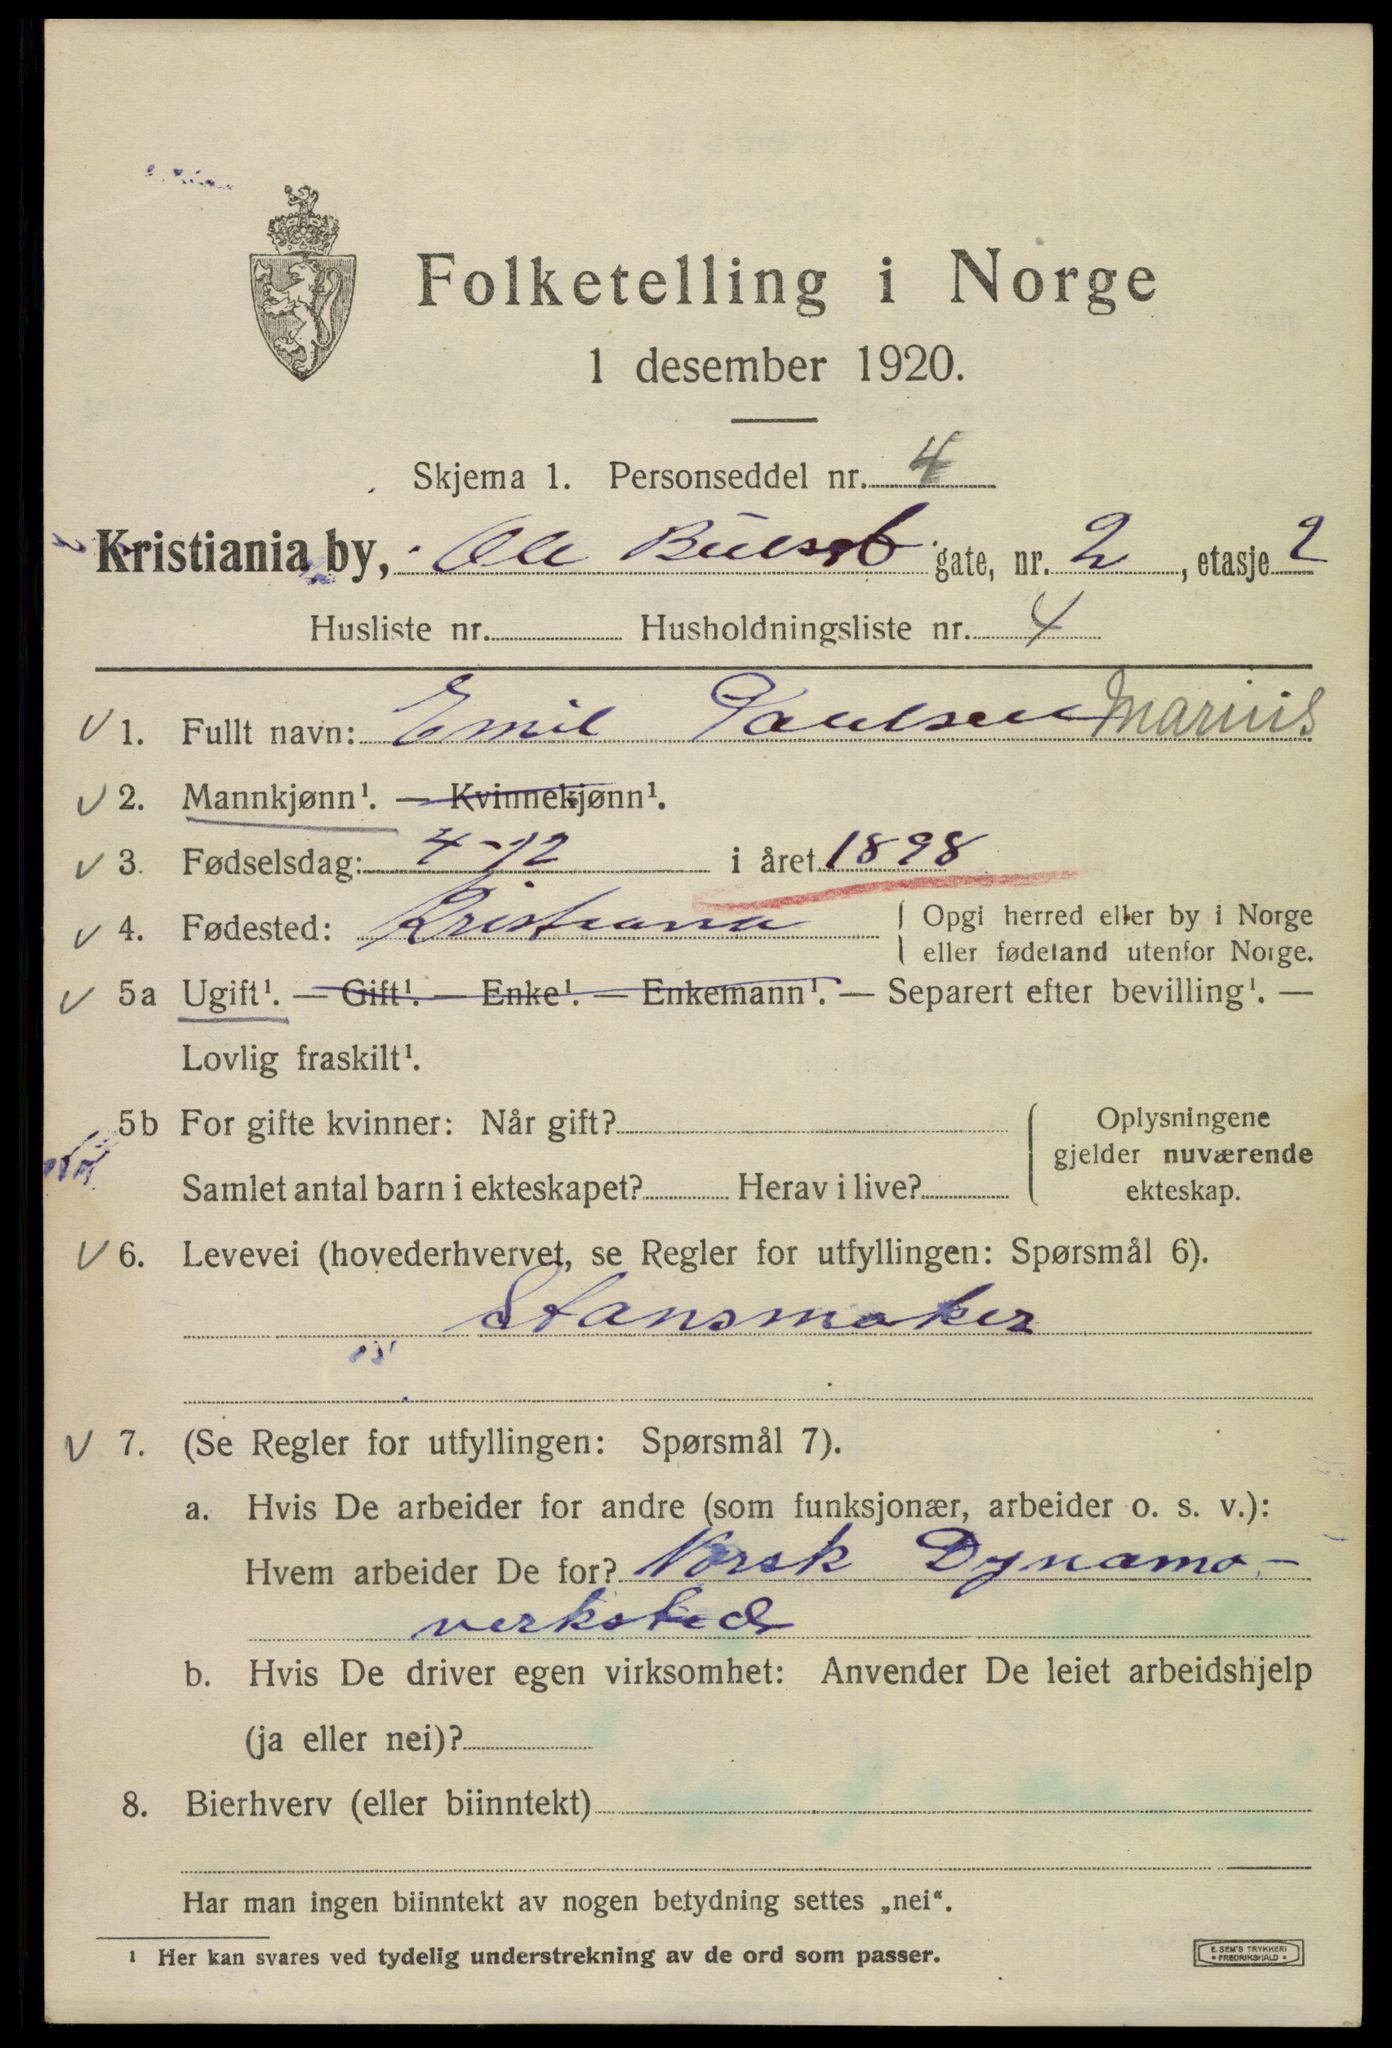 Folketelling i Norge
1 desember 1920.
Skjema 1. Personseddel nr. 4
Kristiania by, Ole Bulls gate, nr. 2, etasje 2
Husliste nr. Husholdningsliste nr. 4
V 1. Fullt navn: Emil Paulsen Marius
V 2. Mannkjønn¹. — Kvinnekjønn¹.
V 3. Fødselsdag: 4-12 i året 1898
V 4. Fødested: Kristiana { Opgi herred eller by i Norge
eller fødeland utenfor Norge.
V 5a Ugift¹. — Gift¹. — Enke¹. — Enkemann¹. — Separert efter bevilling¹. —
Lovlig fraskilt¹.
5b For gifte kvinner: Når gift? { Oplysningene
gjelder nuværende
Samlet antal barn i ekteskapet? Herav i live? ekteskap.
V 6. Levevei (hovederhvervet, se Regler for utfyllingen: Spørsmål 6).
Stansmaker
V 7. (Se Regler for utfyllingen: Spørsmål 7).
a. Hvis De arbeider for andre (som funksjonær, arbeider o. s. v.):
Hvem arbeider De for? Norsk Dynamo-
verksted
b. Hvis De driver egen virksomhet: Anvender De leiet arbeidshjelp
(ja eller nei)?
8. Bierhverv (eller biinntekt)
Har man ingen biinntekt av nogen betydning settes „nei“.
¹ Her kan svares ved tydelig understrekning av de ord som passer.
E. SEM'S TRYKKERI
• FREDRIKSHALD •